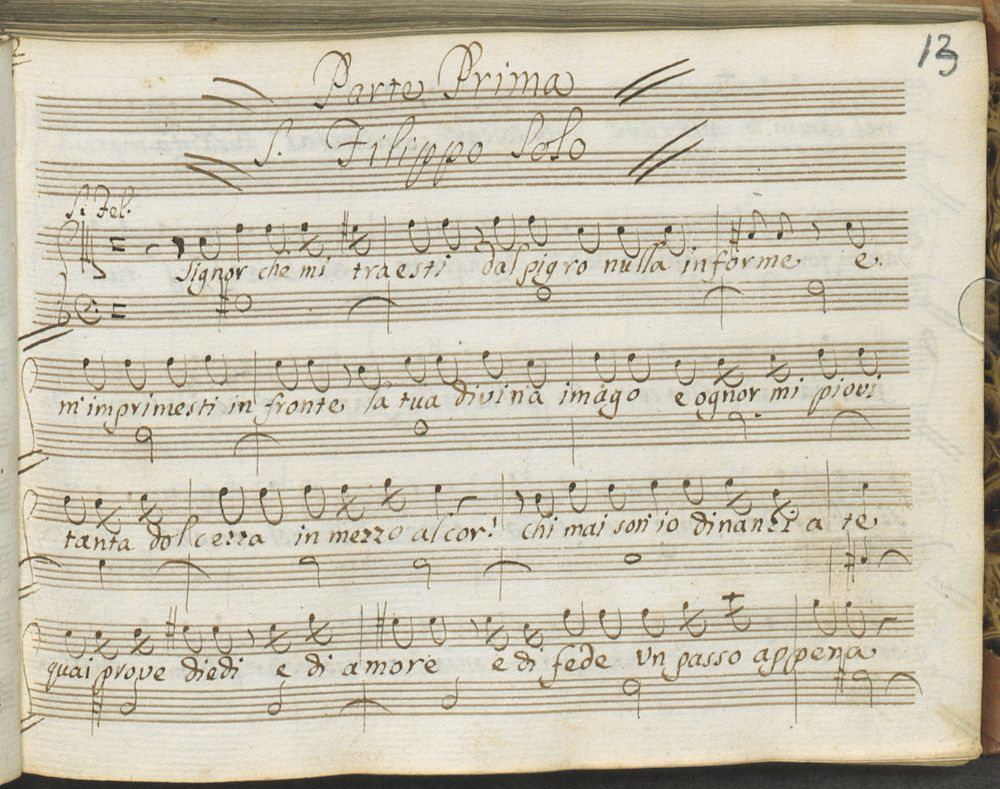 13
Parte Prima
S. Filippo Solo
S. Fel.
Signor che mi traesti dal pigro nulla informe e
m'imprimesti in fronte la tua divina imago e ognor mi piovi
tanta dolcezza in mezzo al cor! chi mai son io dinanzi a te
quai prove diedi e di amore e di fede un passo appena